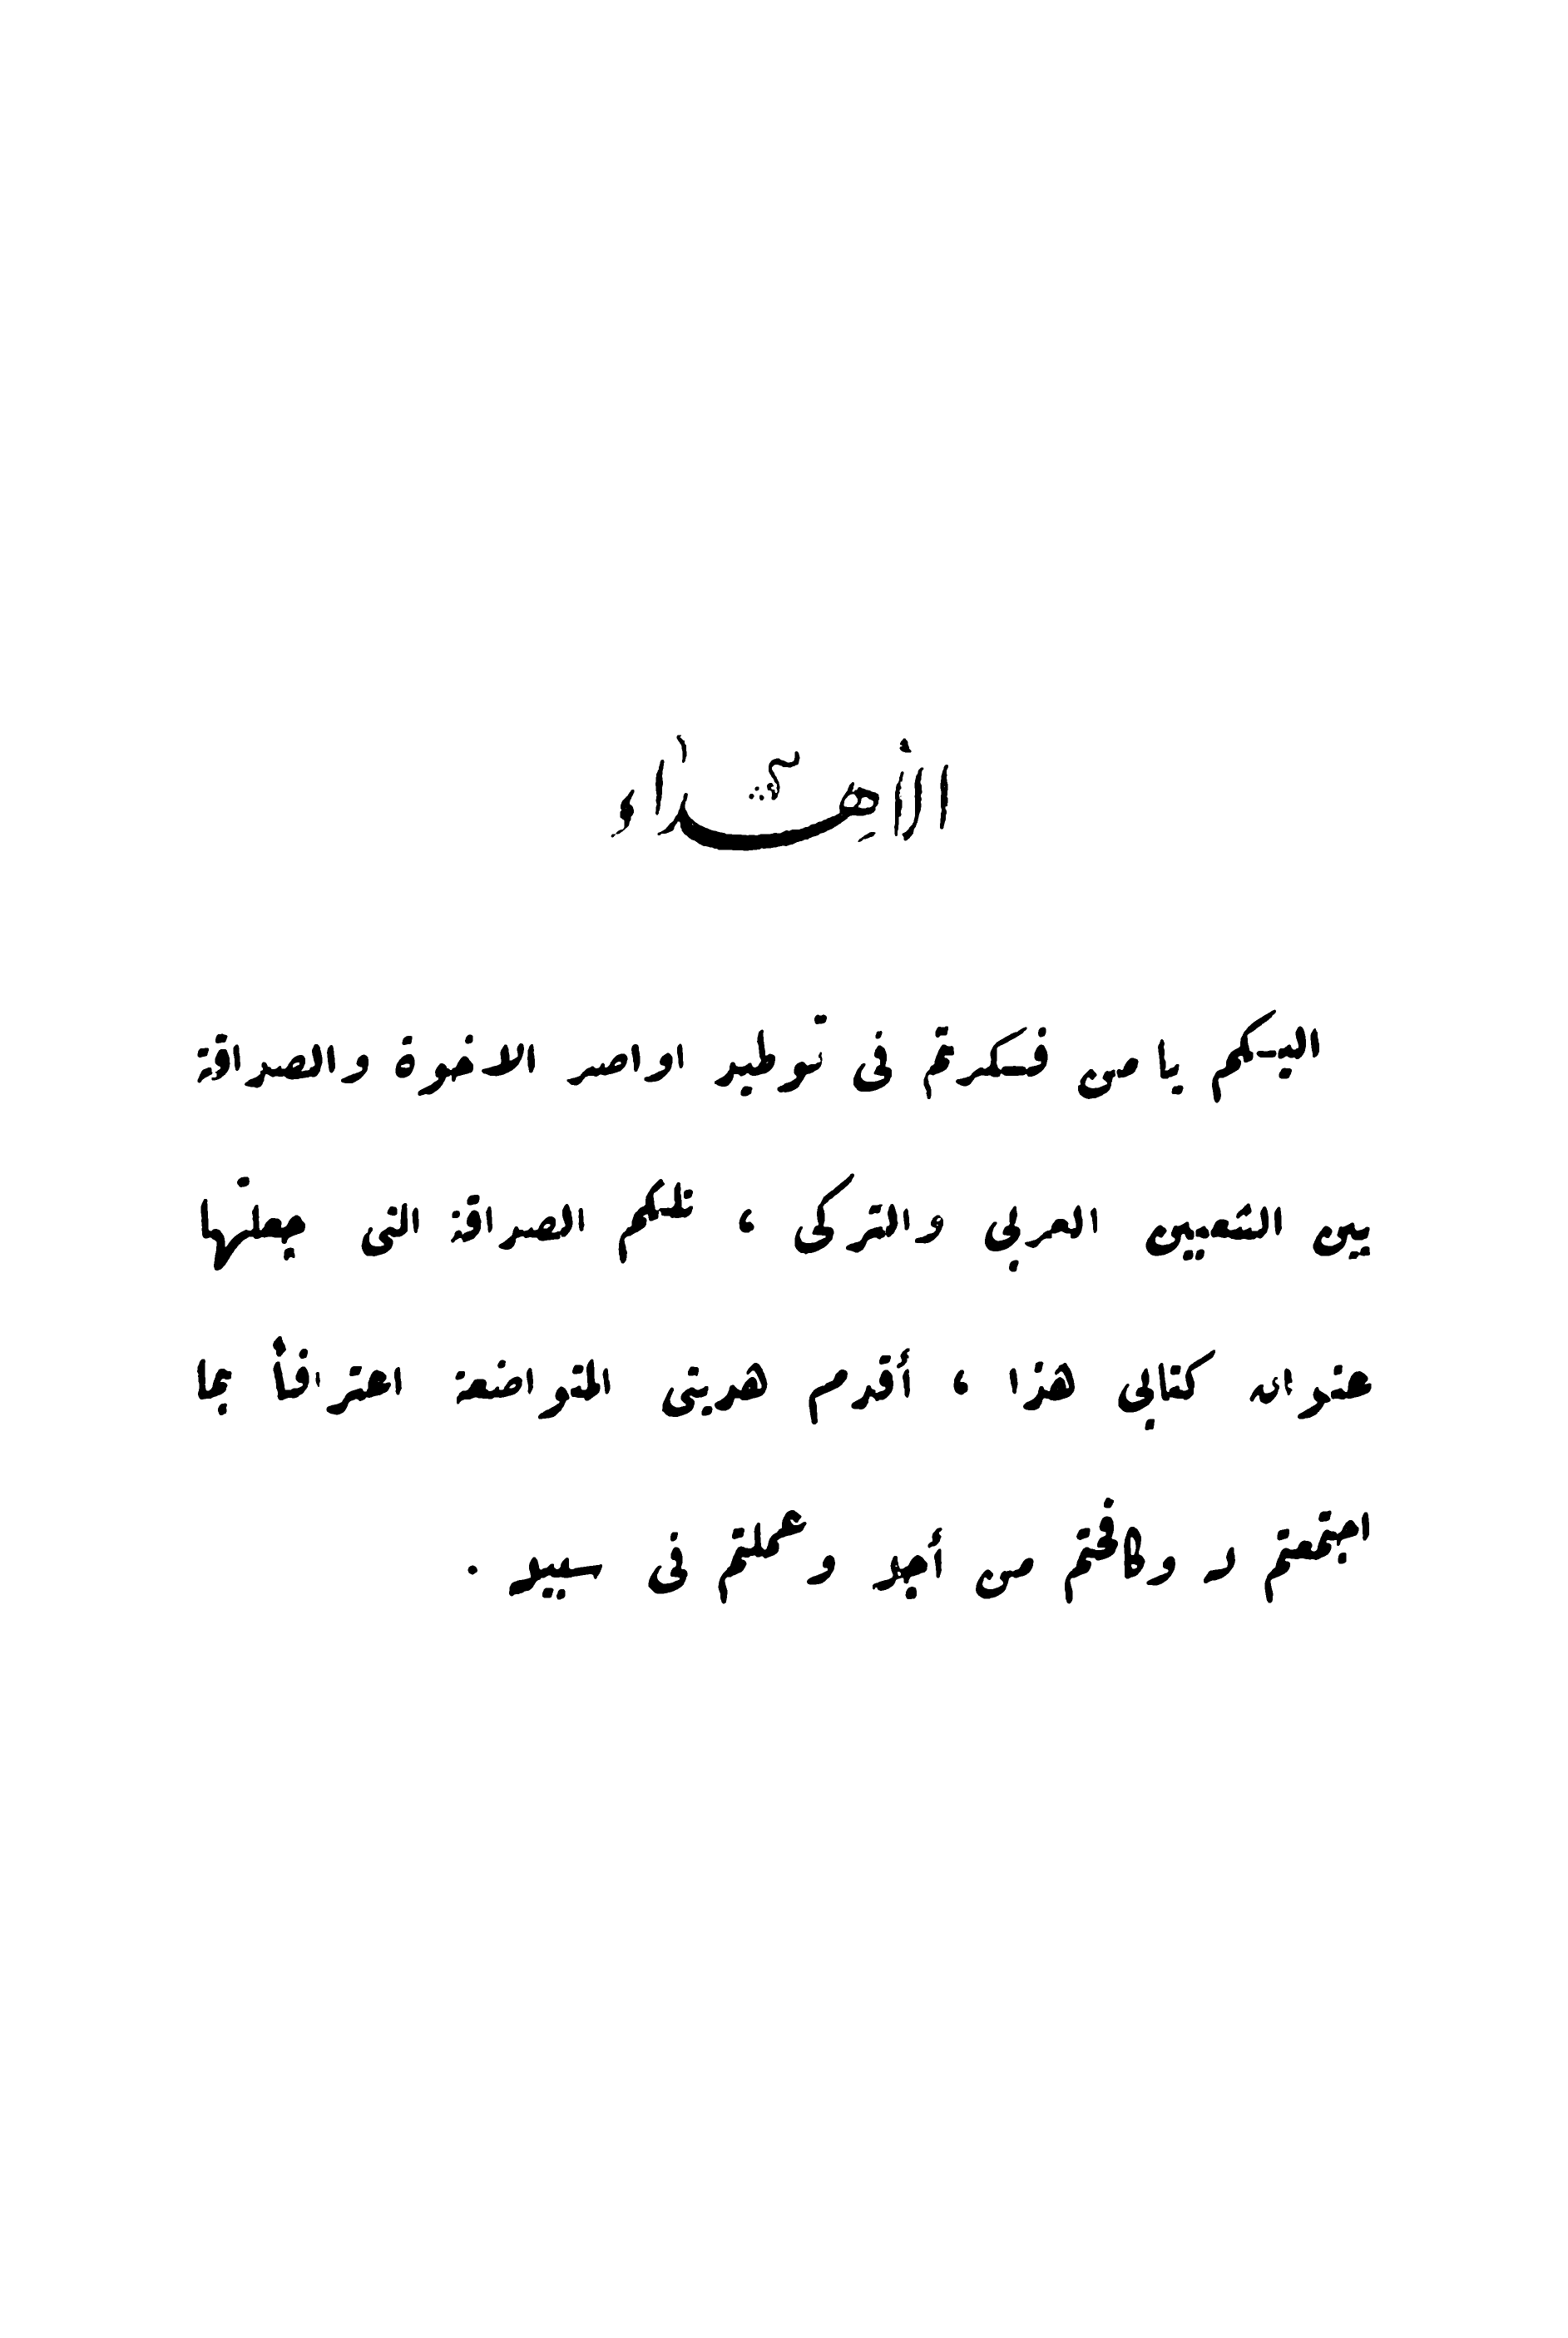 الأهداء
اليكم يا من فكرتم في توطيد اواصر الاخوة والصداقة
بين الشعبين العربي والتركي ، تلكم الصداقة التي جعلتها
عنوان كتابي هذا ، أقدم هديتي المتواضعة اعترافاً بما
اجتمعتم له وكافحتم من أجله وعملتم في سبيله .